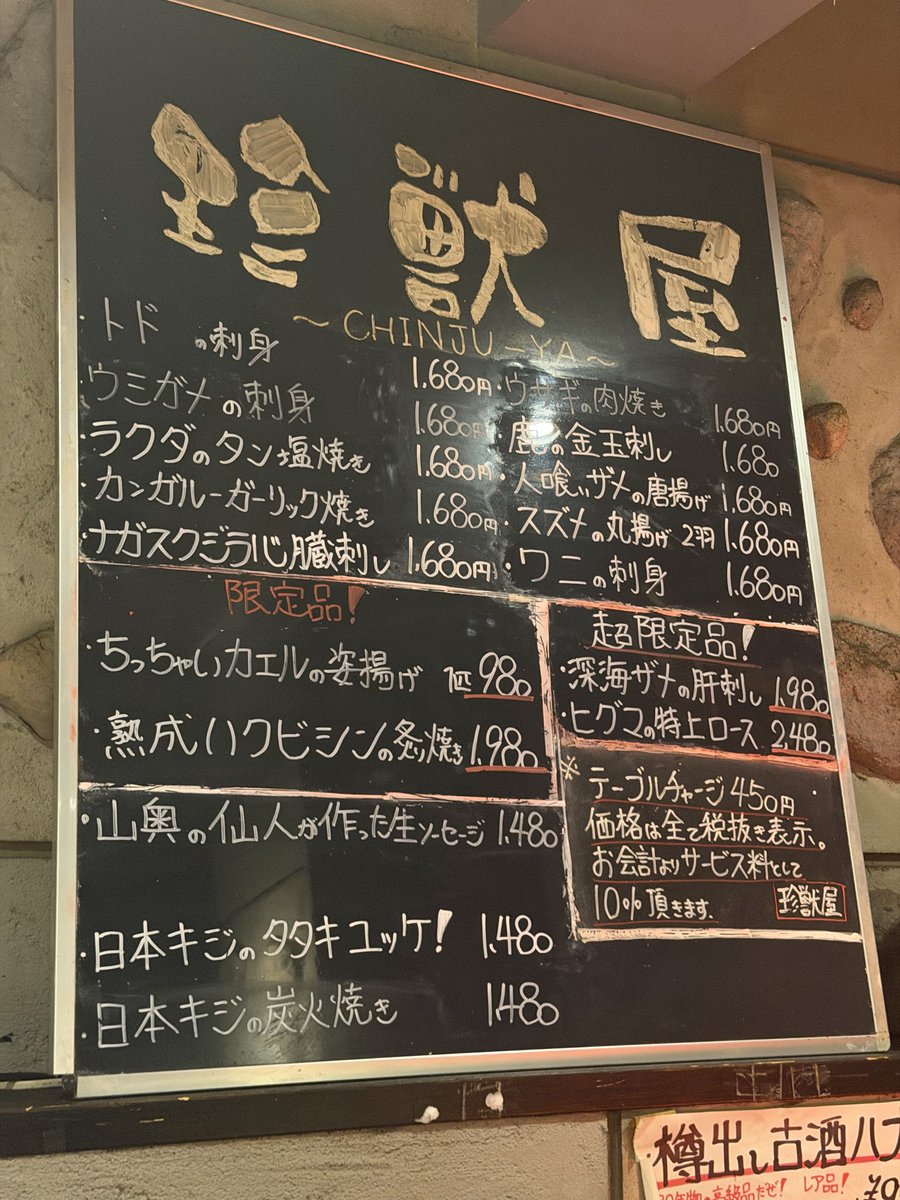 珍獣屋
～CHINJU-YA～
・トドの刺身 1.680円
・ウミガメの刺身 1.680
・ラクダのタン塩焼き 1.680円
・カンガルーガーリック焼き 1.680円
・ナガスクジラ心臓刺し 1.680円
・ウサギの肉焼き 1.680円
・鹿の金玉刺し 1.680
・人喰いザメの唐揚げ 1.680円
・スズメの丸揚げ 2羽 1.680円
・ワニの刺身 1.680円
限定品!
・ちっちゃいカエルの姿揚げ 1匹 980
・熟成ハクビシンの炙り焼き 1.980
超限定品!
・深海ザメの肝刺し 1.980
・ヒグマの特上ロース 2.480
・山奥の仙人が作った生ソーセージ 1.480
・日本キジのタタキユッケ! 1.480
・日本キジの炭火焼き 1.480
※テーブルチャージ450円
価格は全て税抜き表示。
お会計よりサービス料として
10%頂きます.
珍獣屋
樽出し古酒ハブ
年物の高級品だぜ! レア品!